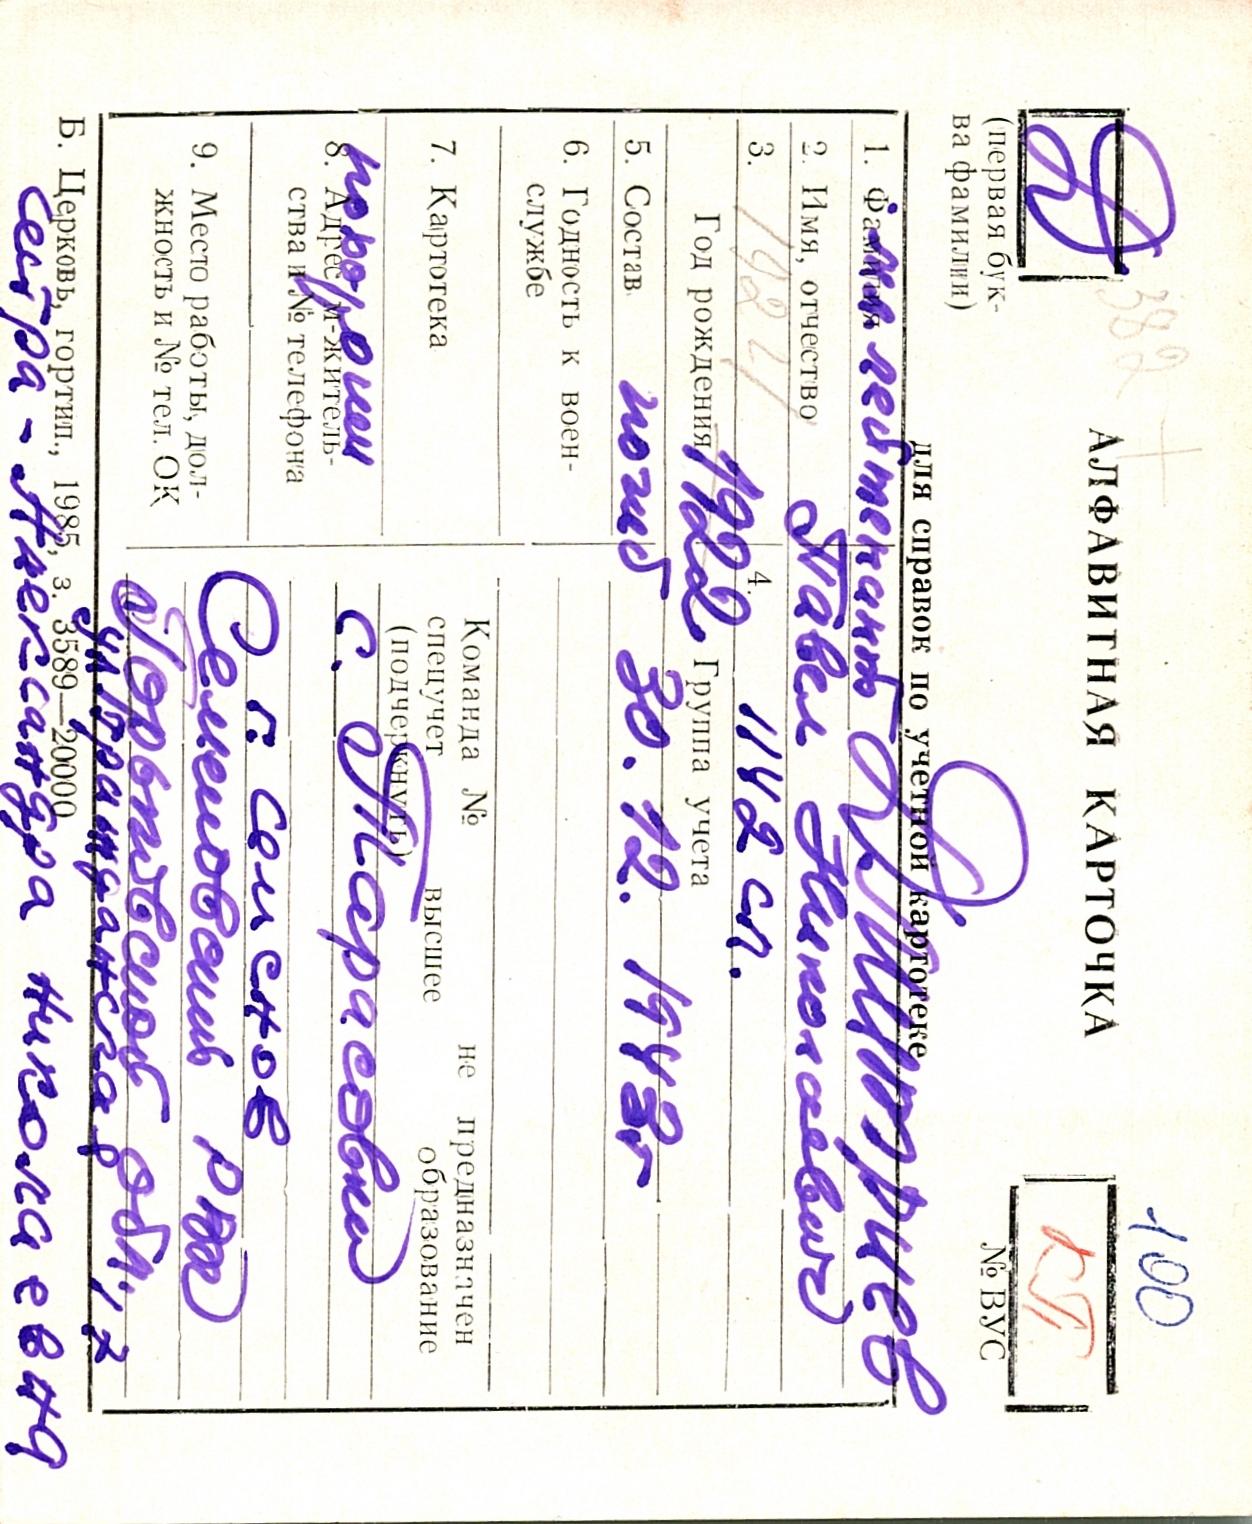 100
Д
382
АЛФАВИТНАЯ КАРТОЧКА
КП
(первая бук-
ва фамилии)
№ ВУС
для справок по учетной картотеке
1. Фамилия лейтенант Дмитриев
2. Имя, отчество Павел Николаевич
3. 1921
4. 1142 сп.
Год рождения 1922 Группа учета
5. Состав погиб 30.12.1943г
6. Годность к воен-
службе
7. Картотека
Команда № не предназначен
спецучет высшее образование
(подчеркнуть)
8. Адрес м-житель-
ства и № телефона
похоронен
с. Тарасовки
г. Семенов
9. Место работы, дол-
жность и № тел. ОК
Семеновский р-на
Горьковской обл.
ул. Гражданская, 7
Б. Церковь, гортип., 1985, з. 3589—20000
сестра - Александра Николаевна